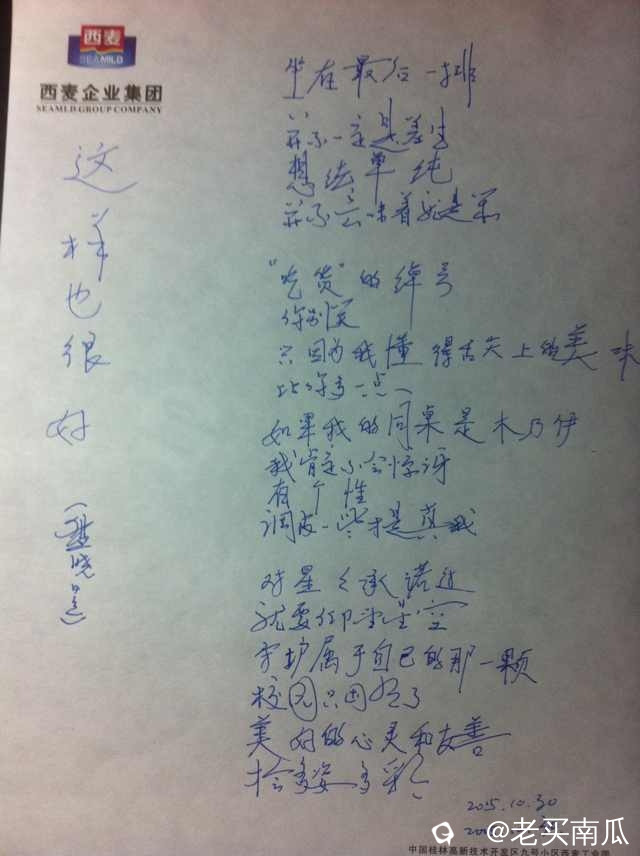 西麦
SEAMILD
西麦企业集团
SEAMILD GROUP COMPANY
这样也很好
坐在最后一排
并不一定是差生
想法单纯
并不意味着就是笨
“吃货”的绰号
你别笑
只因为我懂得舌尖上的美味
比你多一点
如果我的同桌是木乃伊
我肯定不会惊讶
有个性
调皮一些才是真我
对星星承诺过
就要仰望星空
守护属于自己的那一颗
校园只因为了
美好的心灵和友善
多姿多彩
2015.10.30
@老买南瓜
中国桂林高新技术开发区九号小区西麦工业园